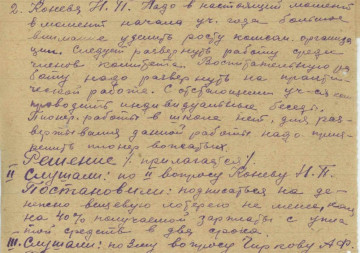 2. Конева Н.П. Надо в настоящий момент
в момент начала уч. года большое
внимание уделить росту комсом. организа
ции. Следует развернуть работу среди
членов комитета. Воспитательную ра
боту надо развернуть на практи
ческой работе. С отстающими уч-ся
проводить индивидуальные беседы.
Пионер. работы в школе нет, для раз
вертывания данной работы надо прик
репить пионер вожатых.
Решение /прилагается/.
II Слушали: по II вопросу Коневу Н.П.
Постановили: подписаться на де-
нежно вещевую лотерею не менее,
на 40% получаемой зарплаты с упла
той средств в два срока.
III. Слушали: по 3му вопросу Чиркову А.Ф.